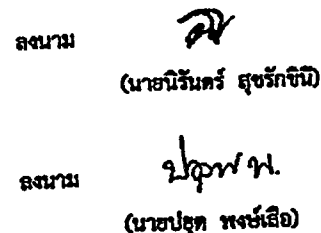 ลงนาม
(นายนิรันดร์ สุขรักขินี)
ลงนาม ปยุต พ.
(นายปยุต พงษ์เสือ)